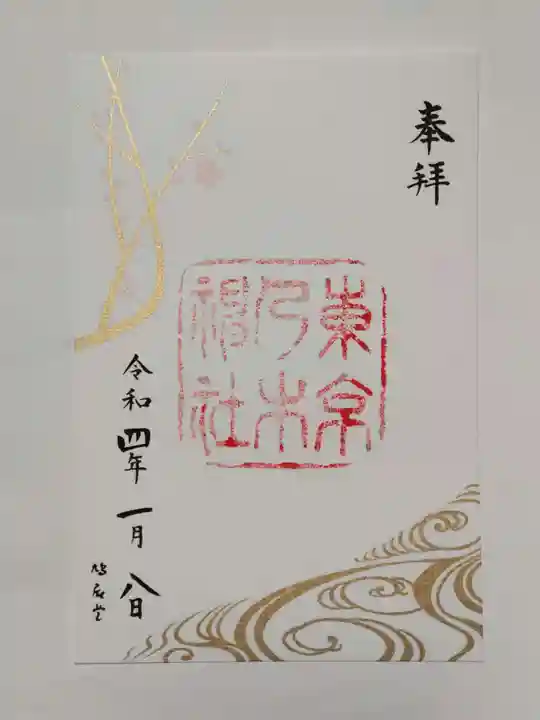 奉拝
東京
乃木
神社
令和四年一月八日
鳩居堂